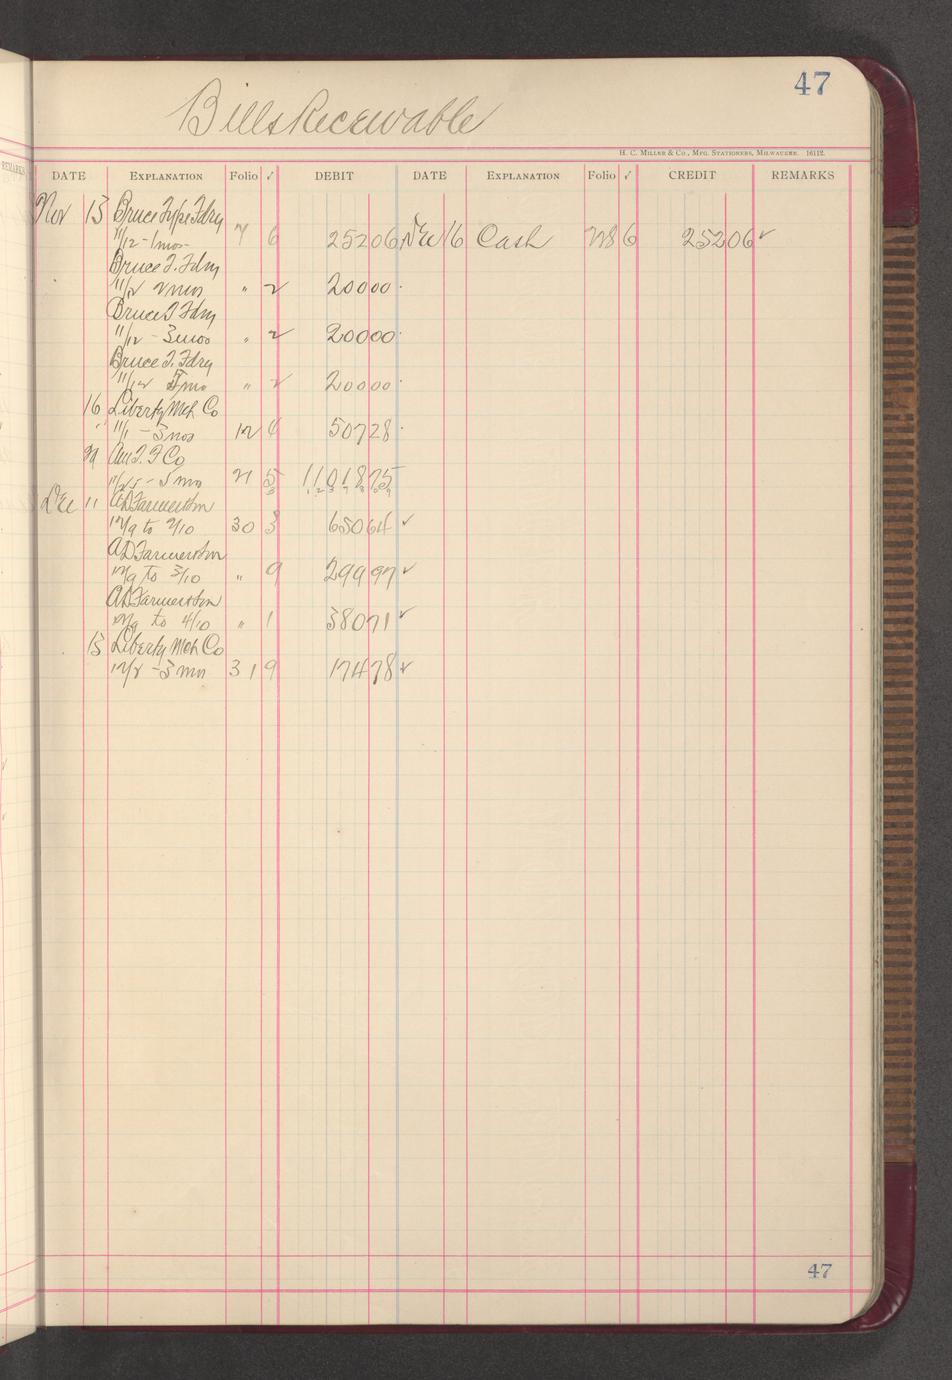 47
Bills Receivable
H. C. Miller & Co., Mfg. Stationers, Milwaukee. 16112.
DATE Explanation Folio ✓ DEBIT DATE Explanation Folio ✓ CREDIT REMARKS
Nov 13 Bruce Type Fdry
11/12 - 1 mo - 7 6 25206 Dec 16 Cash 228 6 25206 ✓
Bruce T. Fdry
11/12 2 mos " 2 20000
Bruce T Fdry
11/12 - 3 mos " 2 20000
Bruce T. Fdry
11/12 5 mo " 2 20000
16 Liberty Mch Co
" 11/1 - 3 mos 12 4 50728
21 Am T. F Co
11/25 - 5 mo 21 5 1101875
Dec 11 AD Farmer & Son
12/9 to 2/10 30 3 65064 ✓
AD Farmer & Son
12/9 to 3/10 " 9 29997 ✓
AD Farmer & Son
12/9 to 4/10 " 1 38071 ✓
13 Liberty Mch Co
12/2 - 3 mos 31 9 17478 ✓
47